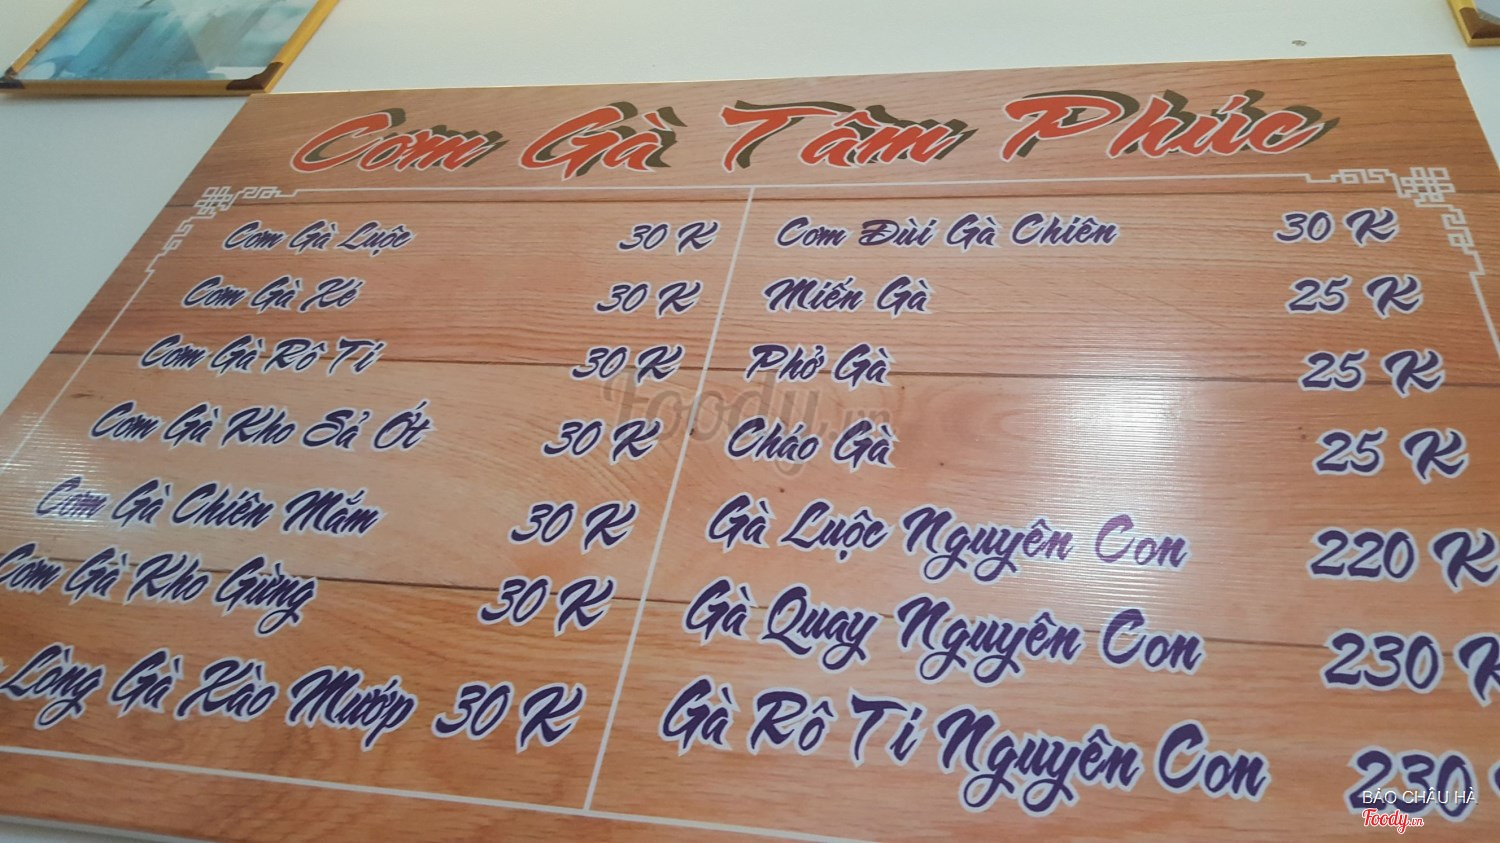 Cơm Gà Tâm Phúc
Cơm Gà Luộc 30 K
Cơm Gà Xé 30 K
Cơm Gà Rô Ti 30 K
Cơm Gà Kho Sả Ớt 30 K
Cơm Gà Chiên Mắm 30 K
Cơm Gà Kho Gừng 30 K
Lòng Gà Xào Mướp 30 K
Cơm Đùi Gà Chiên 30 K
Miến Gà 25 K
Phở Gà 25 K
Cháo Gà 25 K
Gà Luộc Nguyên Con 220 K
Gà Quay Nguyên Con 230 K
Gà Rô Ti Nguyên Con 230
Foody.vn
BẢO CHÂU HÀ
Foody.vn